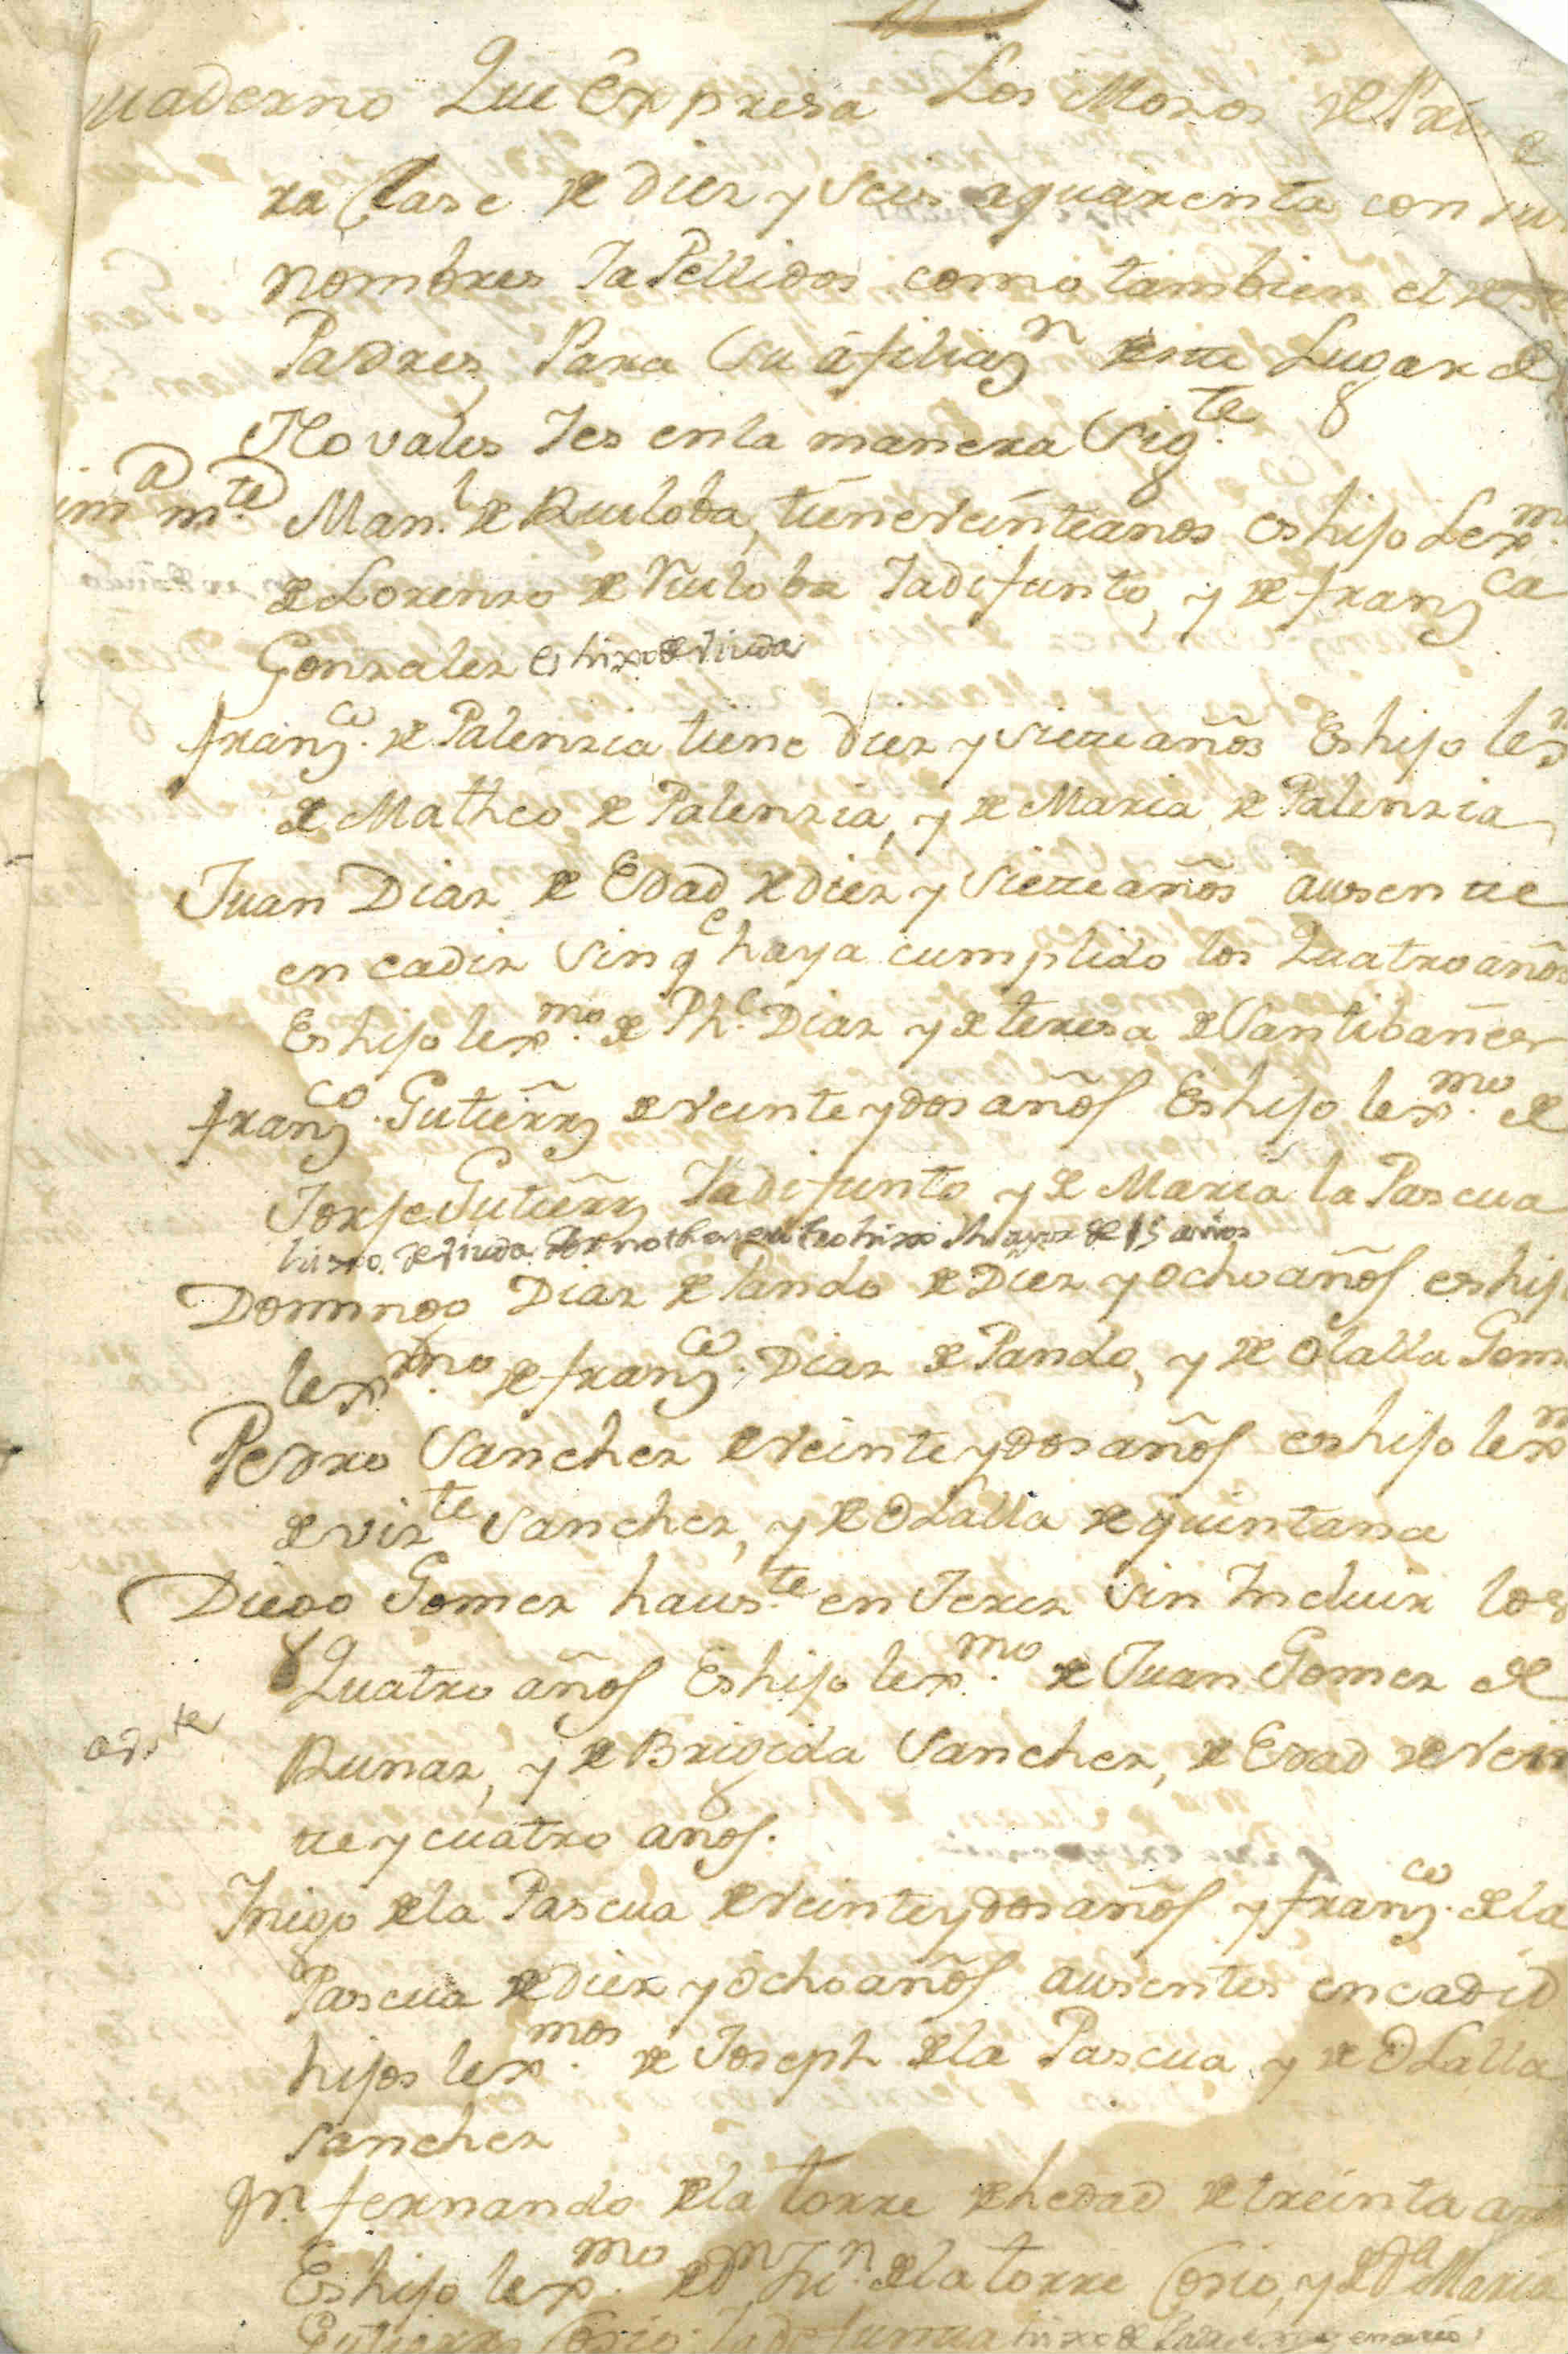 uaderno Que Expresa Los Mosos de Prime
ra Clase de diez y seis a quarenta con su
nombres Ia Pellidos como tambien el de
Padres Para Su afiliazn deste Lugar de
Novales Ies en la manera Sigte
ima mte Manl de Ruiloba, tiene veinte anos es hijo Lexm
de Lorenzo de Ruiloba Iadifunto, y de franzca
Gonzales es hixo de Viuda
franzco de Palenzia tiene diez y siete años Es hijo lex
de Matheo de Palenzia, y de Maria de Palenzia
Juan Diaz de Edad de diez y siete años ausente
en cadiz sin qe haya cumplido los Quatro años
Es hijo lexmo de Phe Diaz y de teresa de Santibañez
franzco Gutierrz de veinte y dos años Es hijo lexmo de
Jorje Gutierrz Iadifunto y de Maria la Pascua
hixo de Viuda Por no thener otro hixo Mayor de 15 años
Domingo Diaz de Pando de Diez y ocho años es hij
lexmo de franzco Diaz de Pando, y de Olalla Gom
Pedro Sanchez de veinte y dos años es hijo lexm
de vizte Sanchez, y de OLalla de quintana
Diego Gomez hauste en Jerez sin Incluir los
Quatro años Es hijo lexmo de Juan Gomez de
Rumaz, y de Brigida Sanchez, de Edad de Vein
te y cuatro años.
Inigo de la Pascua de veinte y dos años y franzco de la
Pascua de diez y ocho años ausentes en cadiz
hijos lexmos de Joseph de la Pascua y de OLalla
Sanchez
Jn fernando de la torre de hedad de treinta añ
Es hijo lexmo de Dn Jn de la torre Cosio, y de Da Maria
Gutierrz Cosio Iadifunta hixo de Padre